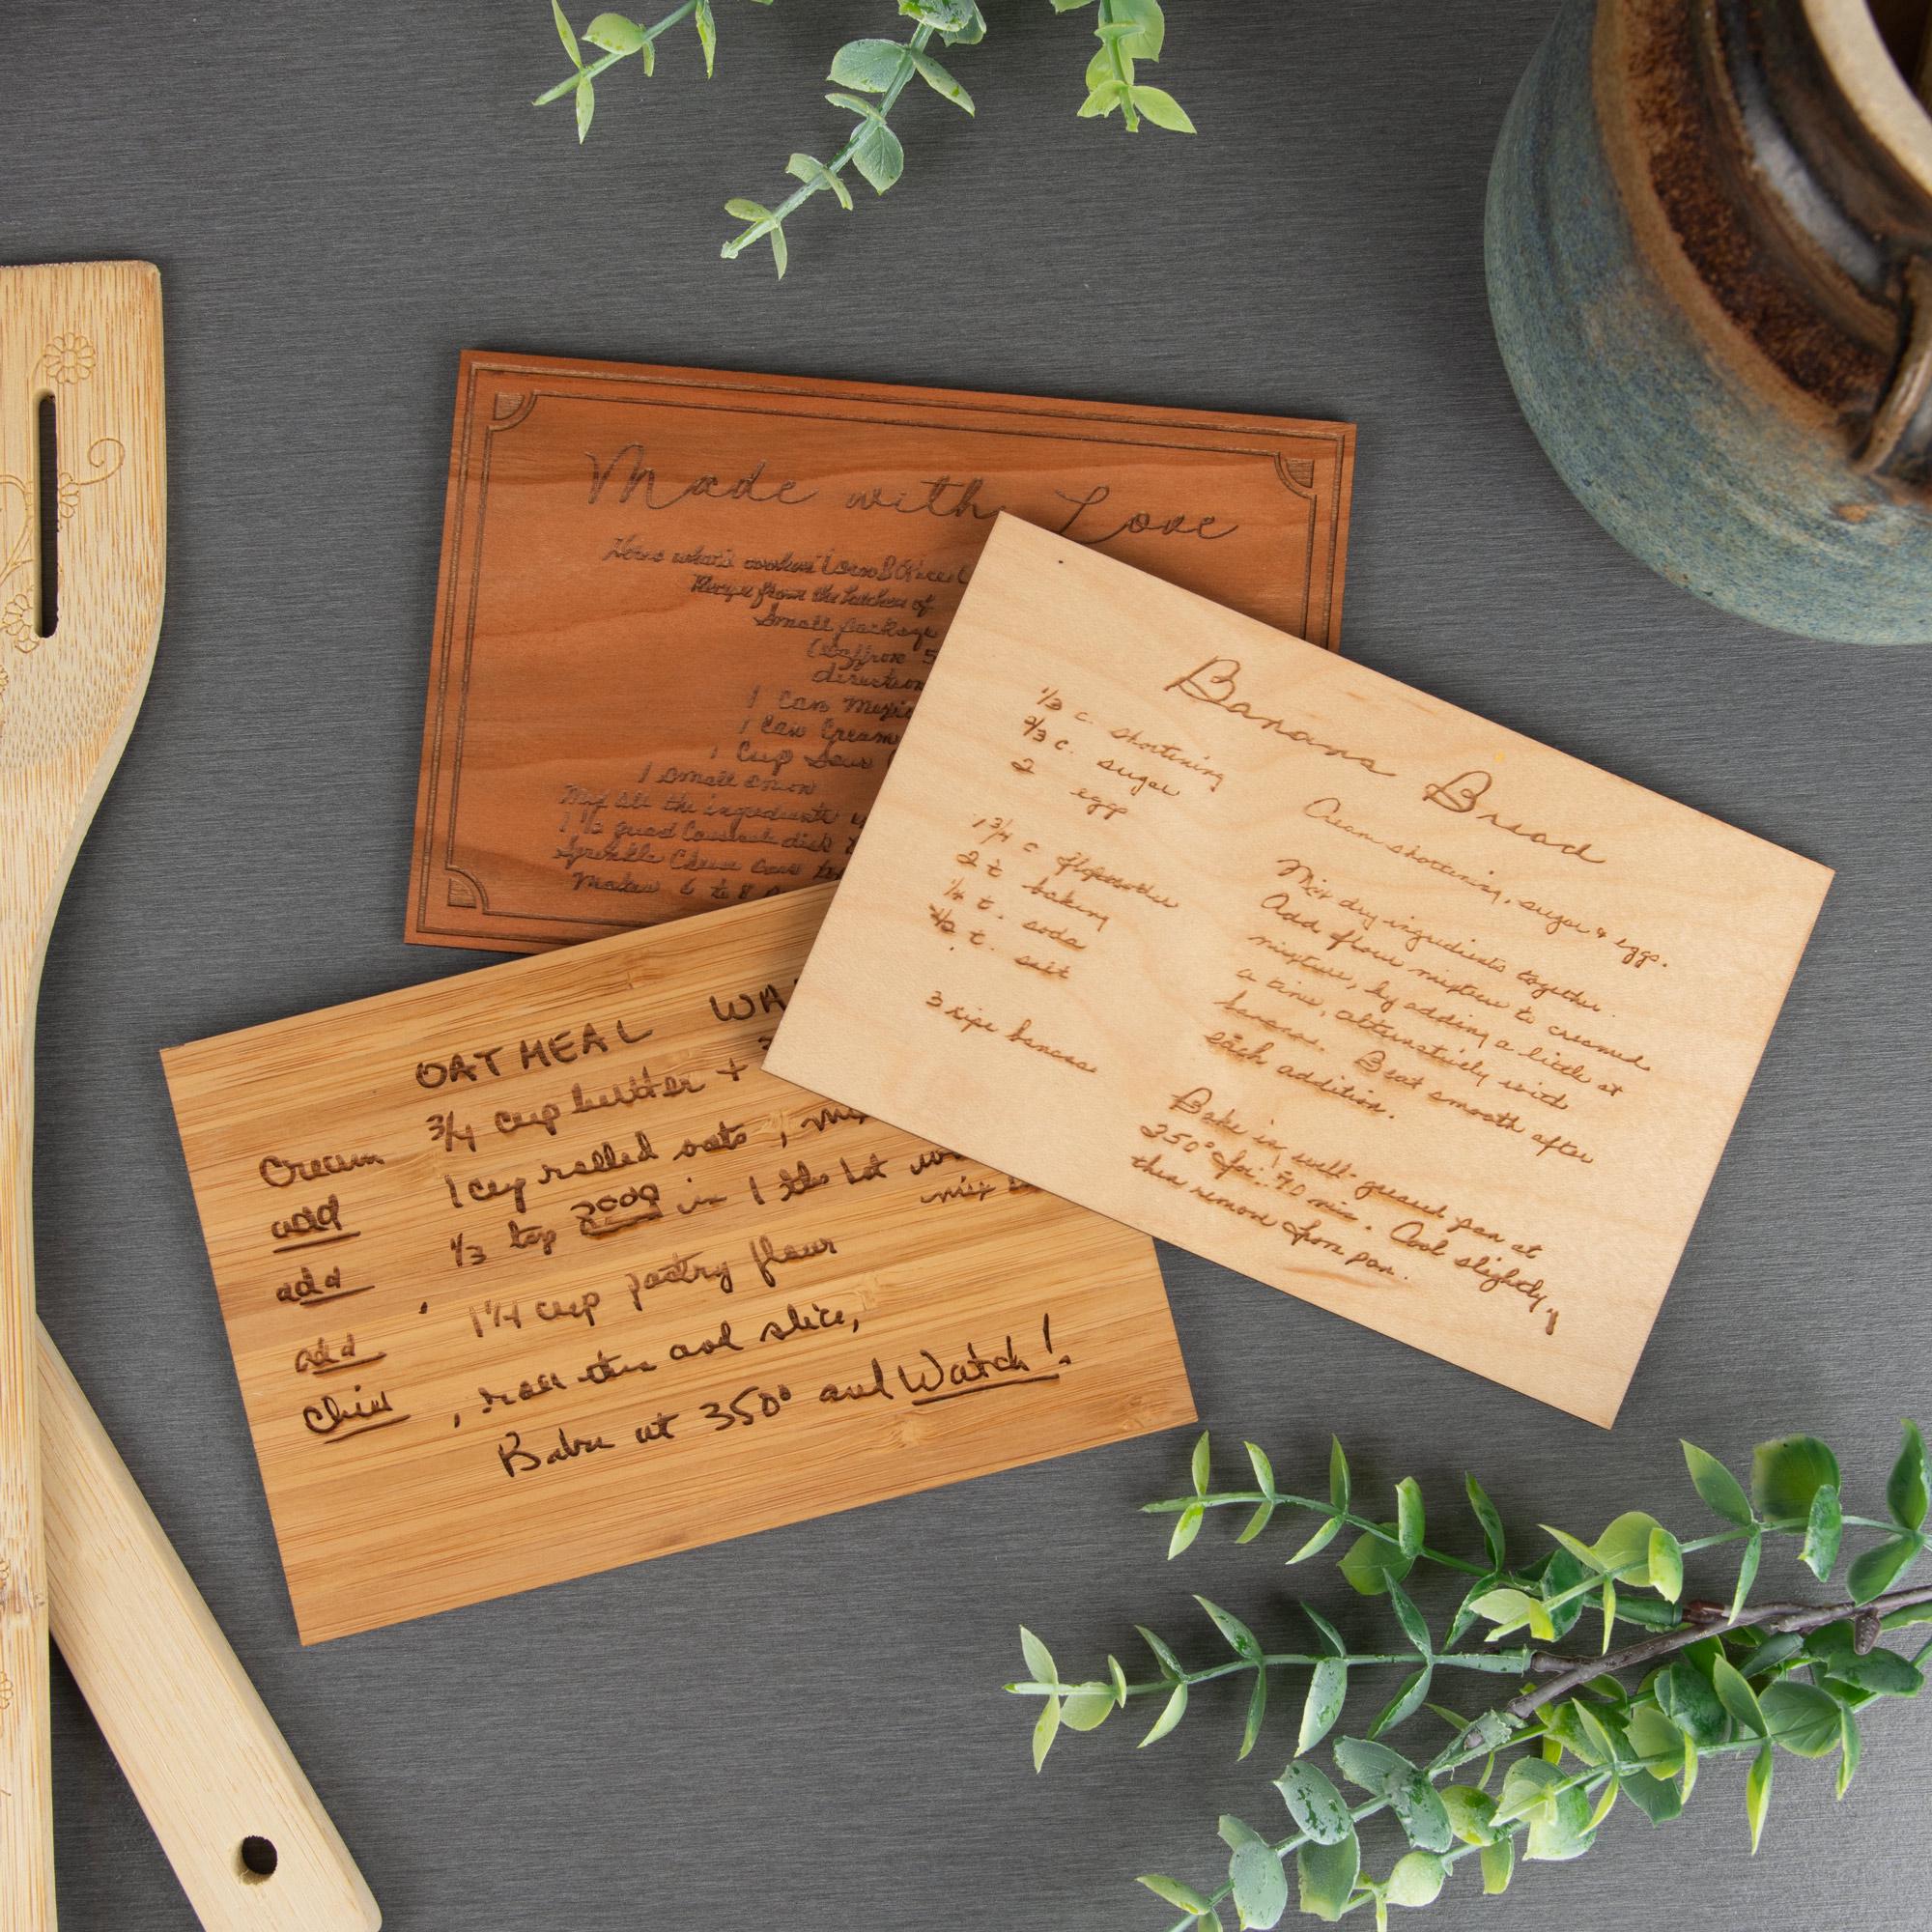 Made with Love
Recipe from the kitchen of
Small package
direction
1 Can Mexic
1 Can Cream
1 Cup Sour
1 small onion
Mix all the ingredients
1 1/2 quart Casserole dish
Sprinkle Cheese over
Makes 6 to 8
OATMEAL WA
Cream 3/4 cup butter +
add 1 cup rolled oats, mix
add 1/3 tsp soda in 1 tbs hot
mix
add 1 1/4 cup pastry flour
Chill, roll thin and slice,
Bake at 350° and Watch!
Banana Bread
1/3 c. shortening
2/3 c. sugar
2 eggs
1 3/4 c
2 t baking
1/4 t. soda
1/2 t. salt
3 ripe bananas
Cream shortening, sugar & eggs.
Mix dry ingredients together.
Add flour mixture to creamed
mixture, by adding a little at
a time, alternatively with
bananas. Beat smooth after
each addition.
Bake in well-greased pan at
350° for 70 min. Cool slightly,
then remove from pan.